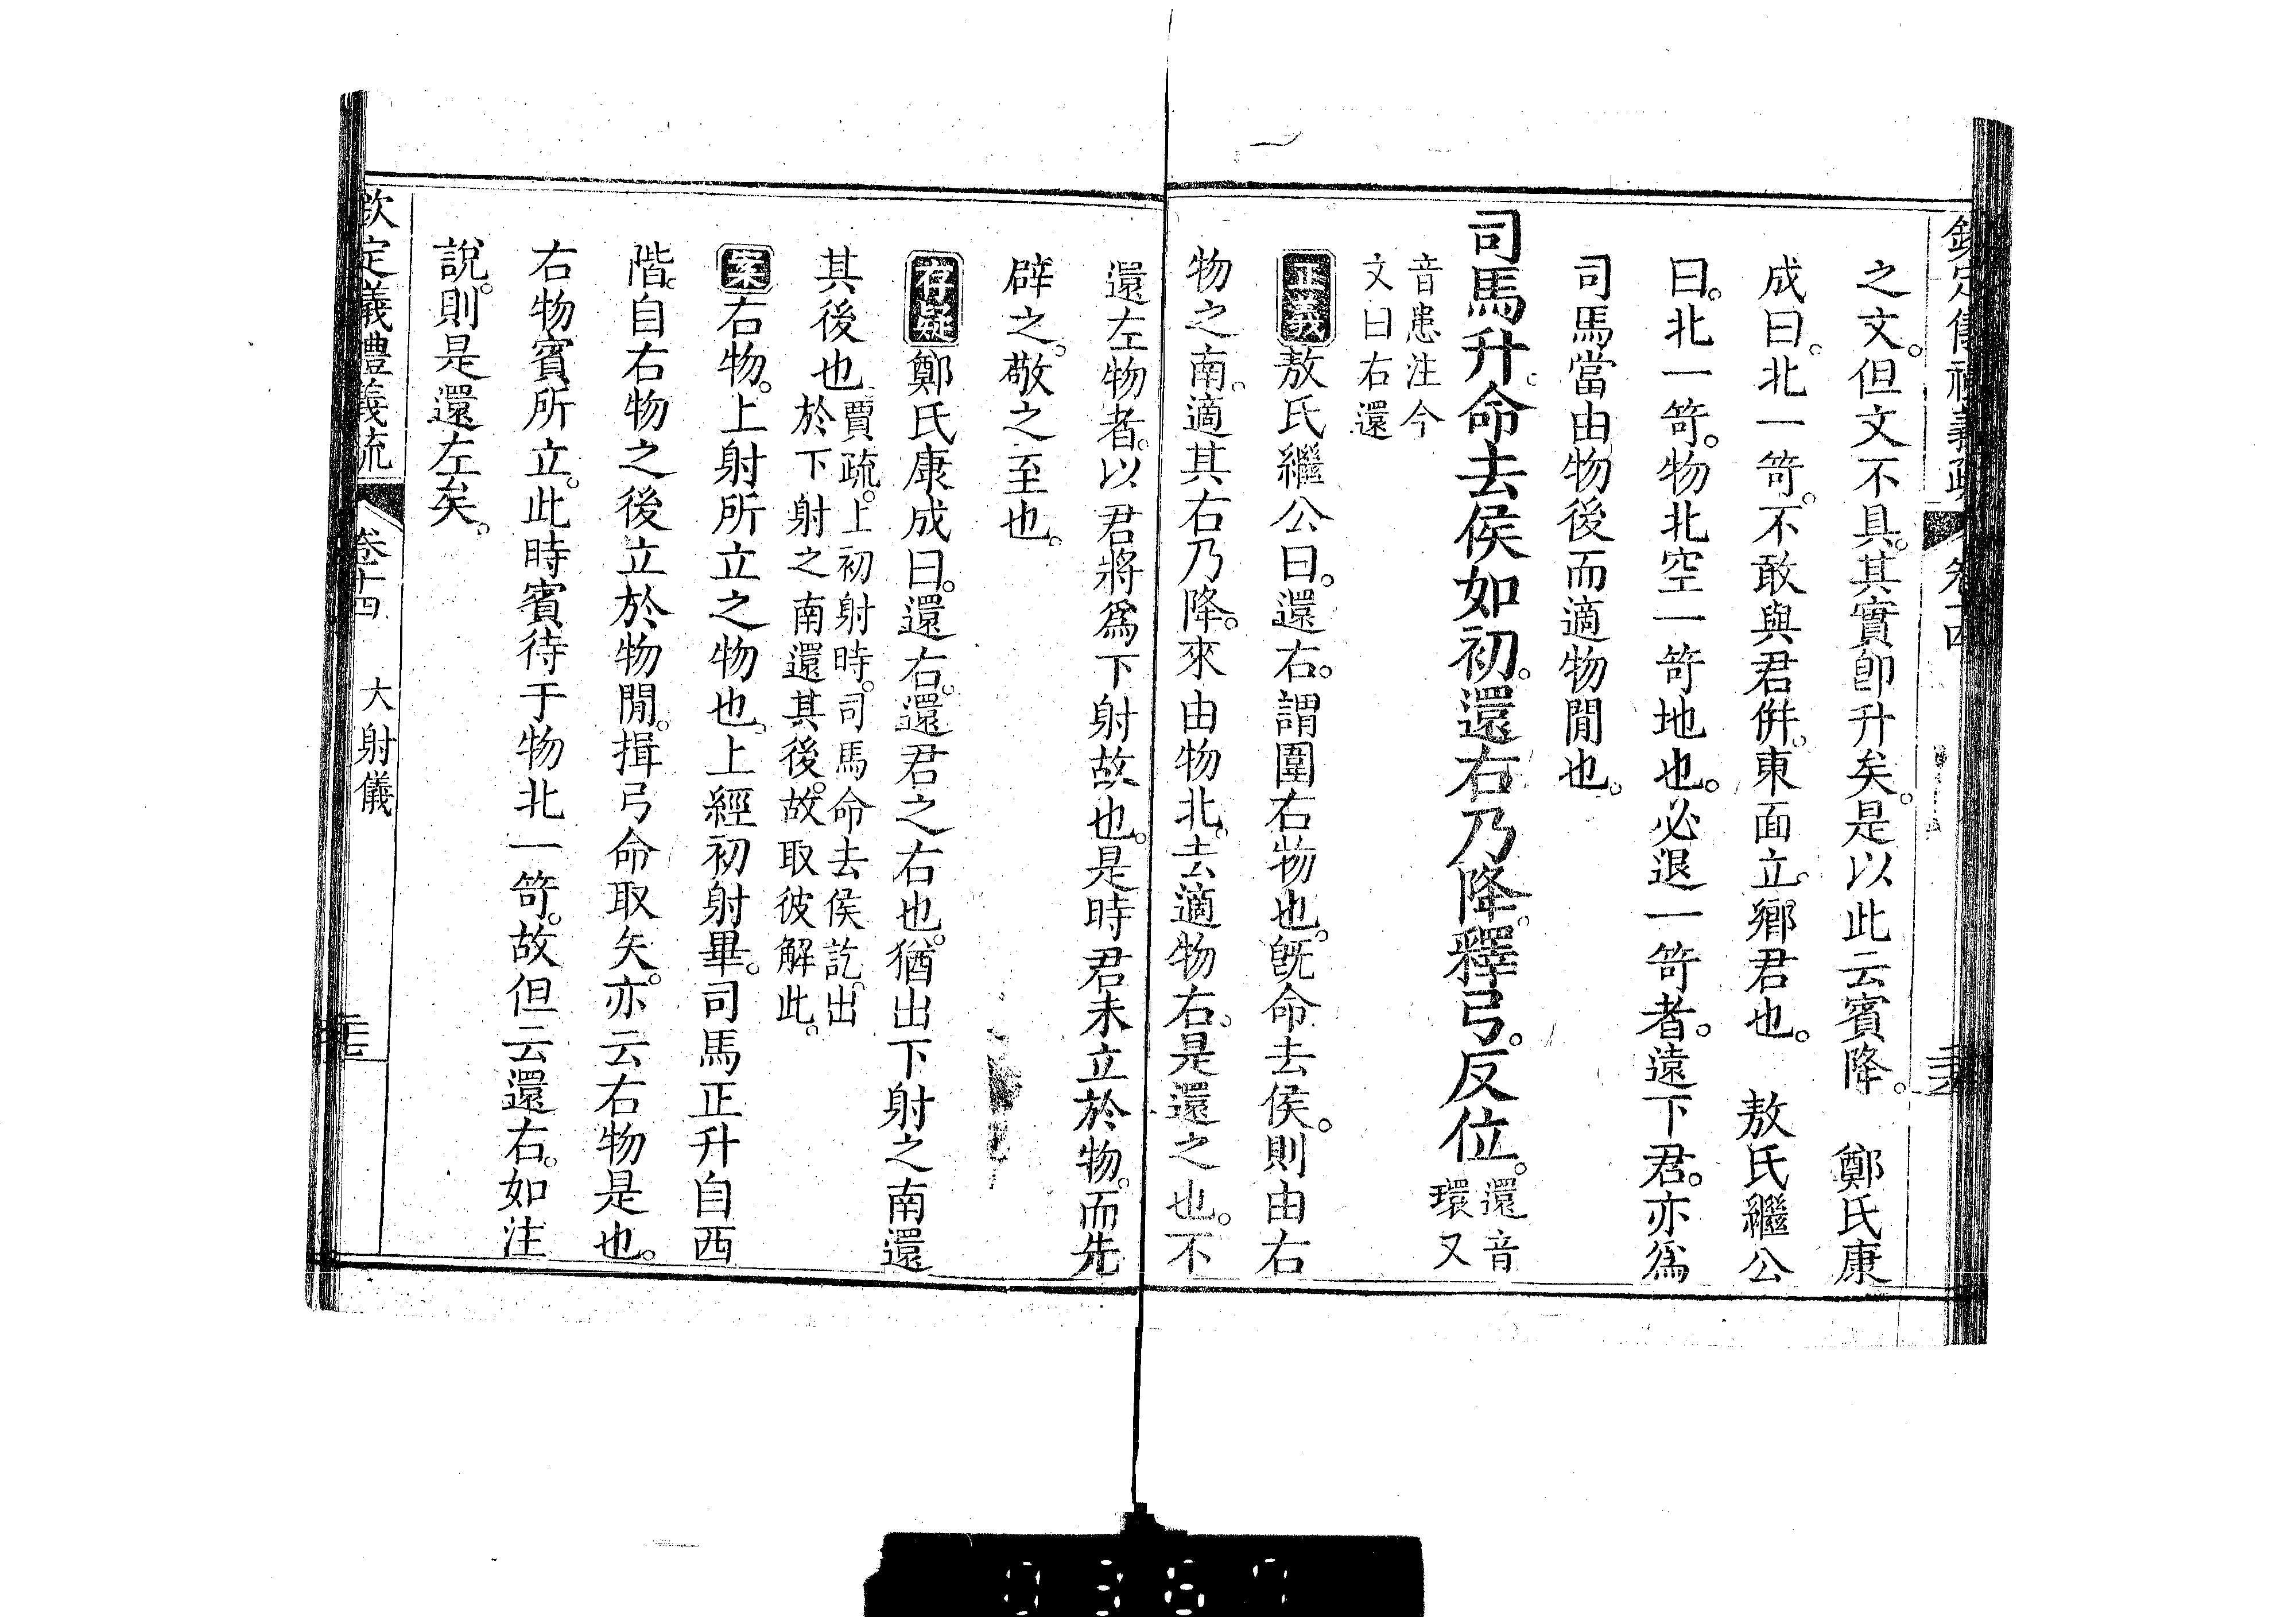 欽定儀禮義疏 卷十四
之文。但文不具。其實卽升矣。是以此云賓降。 鄭氏康
成曰。北一笴。不敢與君併。東面立。鄉君也。 敖氏繼公
曰。北一笴。物北空一笴地也。必退一笴者。遠下君。亦爲
司馬當由物後而適物閒也。
司馬升。命去侯如初。還右乃降。釋弓。反位。還音環又
音患注今文曰右還
正義敖氏繼公曰。還右。謂圍右物也。旣命去侯。則由右
物之南。適其右乃降。來由物北。去適物右。是還之也。不
還左物者。以君將爲下射故也。是時君未立於物。而先
辟之。敬之至也。
存疑鄭氏康成曰。還右。還君之右也。猶出下射之南還
其後也。賈疏。上初射時。司馬命去侯訖。出於下射之南還其後。故取彼解此。
案右物。上射所立之物也。上經初射畢。司馬正升自西
階。自右物之後立於物閒。揖弓命取矢。亦云右物是也。
右物賓所立。此時賓待于物北一笴。故但云還右。如注
說。則是還左矣。
欽定儀禮義疏 卷十四 大射儀 三七
0367